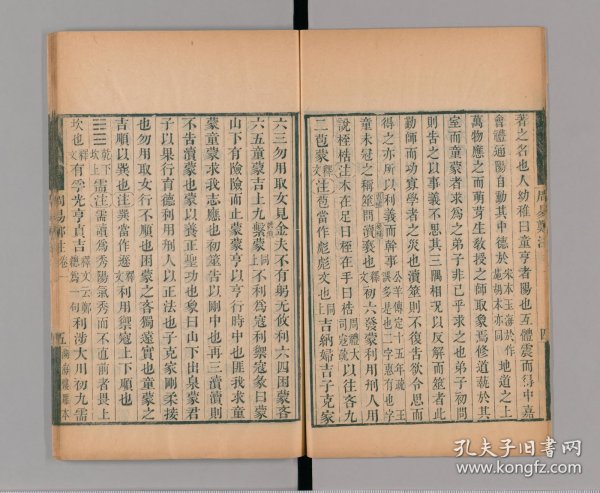 著之名也人幼稚曰童亨者陽也互體震而得中嘉
會禮通陽自動其中德於地道之上
萬物應之而萌芽生教授之師取象焉修道蓺於其
室而童蒙者求爲之弟子非己乎求之也弟子初問
則告之以事義不思其三隅相況以反解而筮者此
勤師而功寡學者之災也瀆筮則不復告欲令思而
得之亦所以利義而幹事
公羊傳定十五年疏
童未冠之稱筮問瀆褻也釋文初六發蒙利用刑人用
說桎梏注木在足曰桎在手曰梏周禮大司寇疏以往吝九
二苞蒙釋文注苞當作彪彪文也吉納婦吉子克家
六三勿用取女見金夫不有躬无攸利六四困蒙吝
六五童蒙吉上九擊蒙不利爲寇利禦寇彖曰蒙
山下有險險而止蒙蒙亨以亨行時中也匪我求童
蒙童蒙求我志應也初筮告以剛中也再三瀆瀆則
不告瀆蒙也蒙以養正聖功也象曰山下出泉蒙君
子以果行育德利用刑人以正法也子克家剛柔接
也勿用取女行不順也困蒙之吝獨遠實也童蒙之
吉順以巽也注巽當作遜釋文利用禦寇上下順也
乾下坎上需注需讀爲秀陽氣秀而不直前者畏上
坎也釋文有孚光亨貞吉利涉大川初九需
周易鄭注卷一
五
孔夫子旧书网
www.kongfz.com